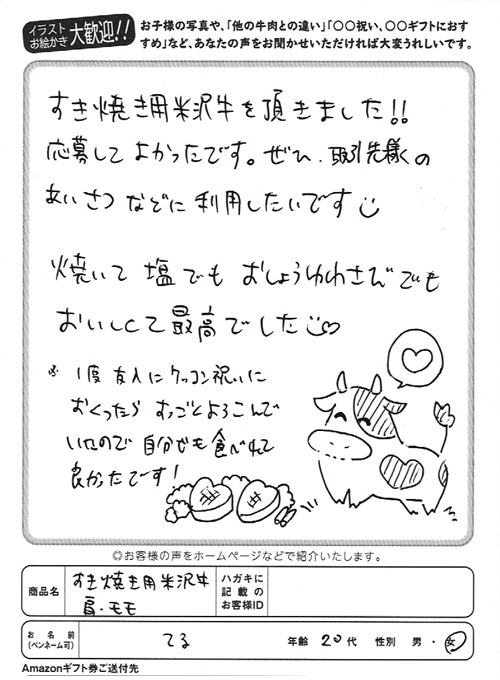 イラスト
お絵かき 大歓迎!!
お子様の写真や、「他の牛肉との違い」「〇〇祝い、〇〇ギフトにおす
すめ」など、あなたの声をお聞かせいただければ大変うれしいです。
すき焼き用米沢牛を頂きました!!
応募してよかったです。ぜひ、取引先様の
あいさつなどに利用したいです
焼いて塩でもおしょうゆわさびでも
おいしくて最高でした♡
※1度友人にケッコン祝いに
おくったらすっごくよろこんで
いたので自分でも食べれて
良かったです!
◎お客様の声をホームページなどで紹介いたします。
商品名 すき焼き用米沢牛
肩・モモ
ハガキに
記載の
お客様ID
お名前
(ペンネーム可) てる 年齢 20代 性別 男・女
Amazonギフト券ご送付先